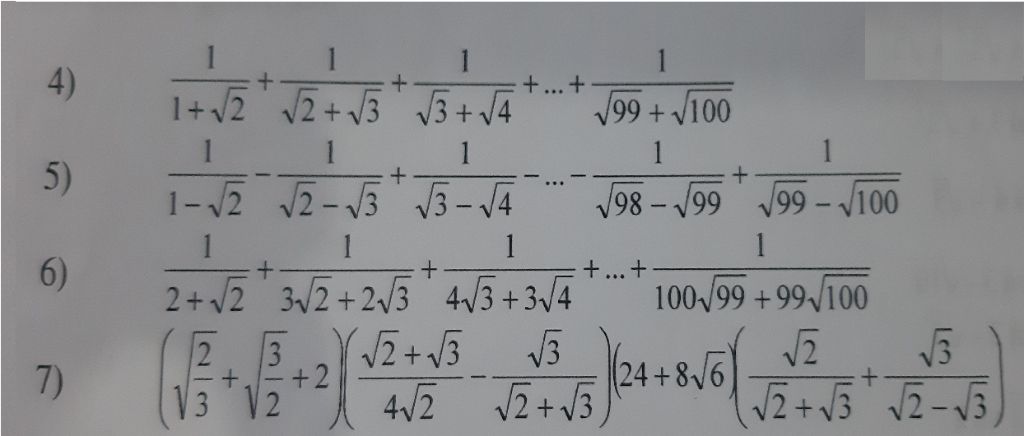 4) \frac{1}{1+\sqrt{2}} + \frac{1}{\sqrt{2}+\sqrt{3}} + \frac{1}{\sqrt{3}+\sqrt{4}} + ... + \frac{1}{\sqrt{99}+\sqrt{100}}
5) \frac{1}{1-\sqrt{2}} - \frac{1}{\sqrt{2}-\sqrt{3}} + \frac{1}{\sqrt{3}-\sqrt{4}} - ... - \frac{1}{\sqrt{98}-\sqrt{99}} + \frac{1}{\sqrt{99}-\sqrt{100}}
6) \frac{1}{2+\sqrt{2}} + \frac{1}{3\sqrt{2}+2\sqrt{3}} + \frac{1}{4\sqrt{3}+3\sqrt{4}} + ... + \frac{1}{100\sqrt{99}+99\sqrt{100}}
7) \left(\sqrt{\frac{2}{3}} + \sqrt{\frac{3}{2}} + 2\right)\left(\frac{\sqrt{2}+\sqrt{3}}{4\sqrt{2}} - \frac{\sqrt{3}}{\sqrt{2}+\sqrt{3}}\right)\left(24+8\sqrt{6}\right)\left(\frac{\sqrt{2}}{\sqrt{2}+\sqrt{3}} + \frac{\sqrt{3}}{\sqrt{2}-\sqrt{3}}\right)